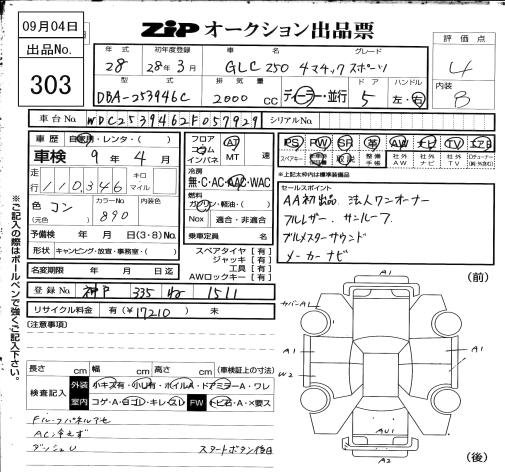 09月04日
出品No.
303
ZIP オークション出品票
年式 初年度登録 車名 グレード
28 28年3月 GLC 250 4マチックスポーツ
型式 排気量 ドア ハンドル
DBA-253946C 2000 CC ディーラー・並行 5 左・右
評価点
4
内装
B
車台No. WDC2539462F057929 シリアルNo.
車歴 自家用・レンタ・( )
車検 9年 4月
走行 110,346 キロ マイル
色 コン カラーNo. 890 内装色
(元色)
予備検 年 月 日(3・8)No.
形状 キャンピング・放宣・事務室・( )
名変期限 年 月 日迄
フロア AT 速
ゴム
インパネ MT
冷房
無・C・AC・AAC・WAC
燃料
ガソリン・軽油・( )
Nox 適合・非適合
乗車定員 名
スペアタイヤ [有]
ジャッキ [有]
工具 [有]
AWロックキー [有]
PS PW SR 革 AW ナビ TV エアB
スペアキー 取説 整備手帳 社外AW 社外ナビ 社外TV
※上記太枠内は標準装備品
セールスポイント
AA初出品 法人ワンオーナー
フルレザー サンルーフ
ブルメスターサウンド
メーカーナビ
登録No. 神戸 335 1511
リサイクル料金 有(¥17210) 未
(注意事項)
長さ cm 幅 cm 高さ cm (車検証上の寸法)
検査記入 外装 小キズ有・小凹有・ホイルA・ドアミラーA・ワレ
室内 コゲ・A・凹コレ・キレ・スレ FW トビ石・A・×要ス
Fルーフパネルアセ
AC冷えず
ダッシュU スタートボタン傷
※ご記入の際はボールペンで強くご記入下さい。
(前)
A1
カバーAL
A1
W2
A1
AU1
A2
(後)